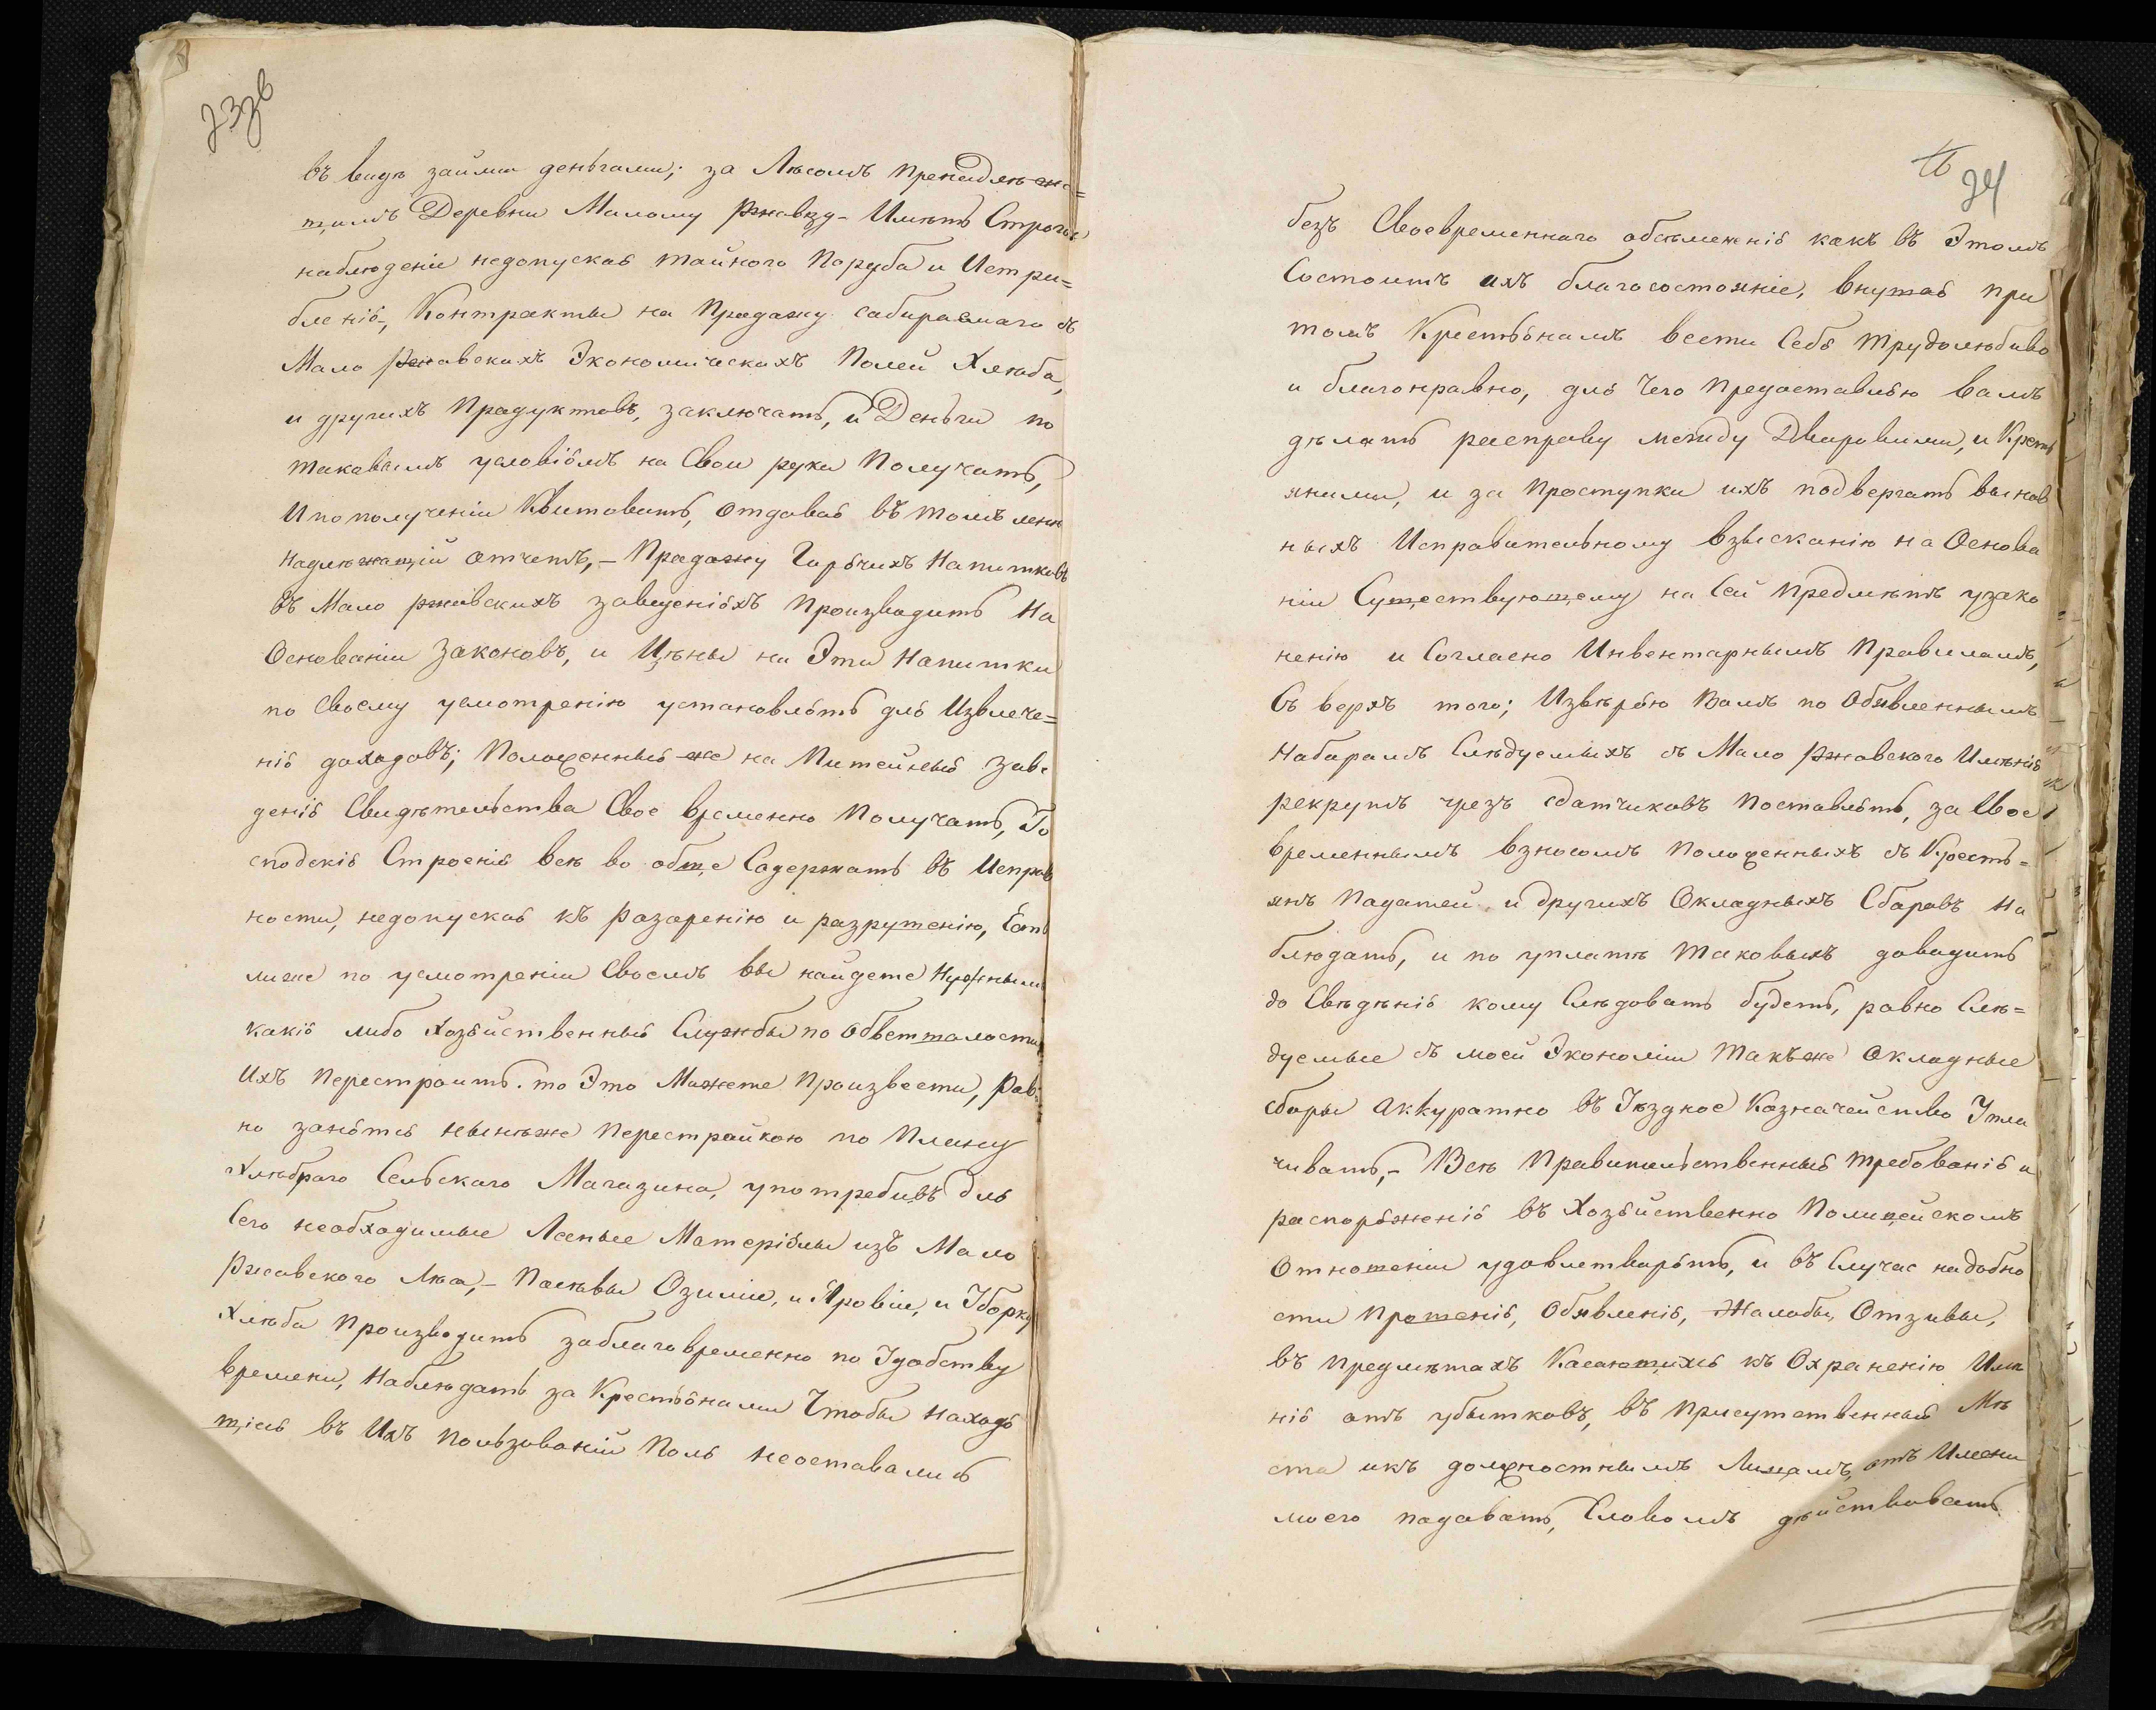 23зв
въ видѣ займа деньгами; за Лѣсомъ принадлѣжа=
щимъ Деревни Малому Ржавцу - Имѣть Строгое
наблюденіе недопуская тайного Поруба и Истри=
бленія, Контракты на Продажу сабираемаго съ
Мало ржавскихъ Экономическихъ Полей Хлѣба,
и другихъ Продуктовъ, заключать, и Деньги по
таковымъ условіямъ на Свои руки Получать,
И по полученіи Квитовать, отдавая въ томъ мнѣ
надлѣжащій отчетъ, - Продажу Горячихъ Напитковъ
въ Мало ржавскихъ заведеніяхъ Производить На
Основаніи Законовъ, и Цѣны на Эти Напитки
по Своему усмотренію установлять для Извлече=
нія доходовъ; Положенныя же на Питейныя Заве
денія Свидѣтельства Свое временно Получать, Го
сподскія Строенія всѣ во обще Садержать въ Исправ
ности, недопуская къ разаренію и разрушенію, Есть
лиже по усмотреніи Своемъ вы найдете Нужными
какія либо Хозяйственныя Службы по обветшалости
Ихъ Перестроить. то Это Можете Произвести, Рав=
но заняться нынѣже Перестрайкою по Плану
Хлѣбнаго Сельскаго Магазина, употребивъ для
Сего необходимые Лсеные Матеріялы изъ Мало
Ржавского Лѣса, - Посѣвы Озими, и Яровіи, и Уборку
Хлѣба Производить заблаговременно по Удобству
времени, Наблюдать за Крестьянами Чтобы находя
щіеся въ Ихъ Пользованіи Поля неоставались
16
24
безъ Своевременнаго обсѣмененія какъ въ Этомъ
Состоитъ ихъ благосостояніе, внушая при
томъ Крестьянамъ вести Себя трудолюбиво
и благонравно, для Чего Предоставляю вамъ
дѣлать расправу между Дворовыми, и Кресть
янами, и за Проступки ихъ подвергать винов
ныхъ Исправительному взысканію на Основа
ніи Существующему на Сей Предмѣтъ узако
ненію и Согласно Инвентарнымъ Правиламъ,
Съ верхъ того; Извѣряю Вамъ по Обявленнымъ
Наборамъ Слѣдуемыхъ съ Мало Ржавского Имѣнія
рекрутъ чрезъ сдатчиковъ Поставлять, за Свое
временнымъ взносомъ Положенныхъ съ Кресть=
янъ Падатей и других Окладныхъ Сборовъ На
блюдать, и по уплатѣ таковыхъ даводить
до Свѣдѣнія кому Слѣдовать будетъ, равно Слѣ=
дуемые съ моей Экономіи также Окладные
сборы аккуратно въ Уѣздное Казначейство Упла
чивать, - Всѣ Правительственныя требованія и
распоряженія въ Хозяйственно Полицейскомъ
Отношеніи удовлетварять, и въ Случае надобно
сти Прошенія, Обявленія, Жалобы, Отзывы,
въ предмѣтахъ Касающихся къ Охраненію Имѣ
нія отъ убытковъ, въ Присутственныя Мѣ
ста икъ должностнымъ Лицамъ, отъ Имени
моего падавать, Словомъ дѣйствовать